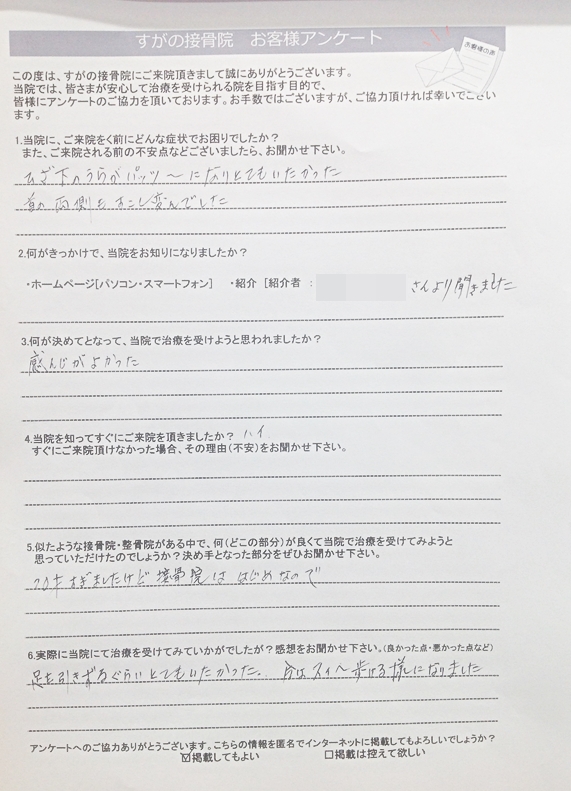 すがの接骨院　お客様アンケート
お客様の声
この度は、すがの接骨院にご来院頂きまして誠にありがとうございます。
当院では、皆さまが安心して治療を受けられる院を目指す目的で、
皆様にアンケートのご協力を頂いております。お手数ではございますが、ご協力頂ければ幸いでござい
ます。
1.当院に、ご来院をく前にどんな症状でお困りでしたか？
また、ご来院される前の不安点などございましたら、お聞かせ下さい。
ひざ下のうらがパッツ〜になりとてもいたかった
首の両側もすこし変んでした
2.何がきっかけで、当院をお知りになりましたか？
・ホームページ[パソコン・スマートフォン]　・紹介 [紹介者 : さんより聞きました
3.何が決めてとなって、当院で治療を受けようと思われましたか？
感んじがよかった
4.当院を知ってすぐにご来院を頂きましたか？ ハイ
すぐにご来院頂けなかった場合、その理由(不安)をお聞かせ下さい。
5.似たような接骨院・整骨院がある中で、何(どこの部分)が良くて当院で治療を受けてみようと
思っていただけたのでしょうか？決め手となった部分をぜひお聞かせ下さい。
すぎましたけど 接骨院は はじめなので
6.実際に当院にて治療を受けてみていかがでしたが？感想をお聞かせ下さい。(良かった点・悪かった点など)
足を引きずるぐらいとてもいたかった。 今はスイ〜歩ける様になりました
アンケートへのご協力ありがとうございます。こちらの情報を匿名でインターネットに掲載してもよろしいでしょうか？
☑掲載してもよい　□掲載は控えて欲しい